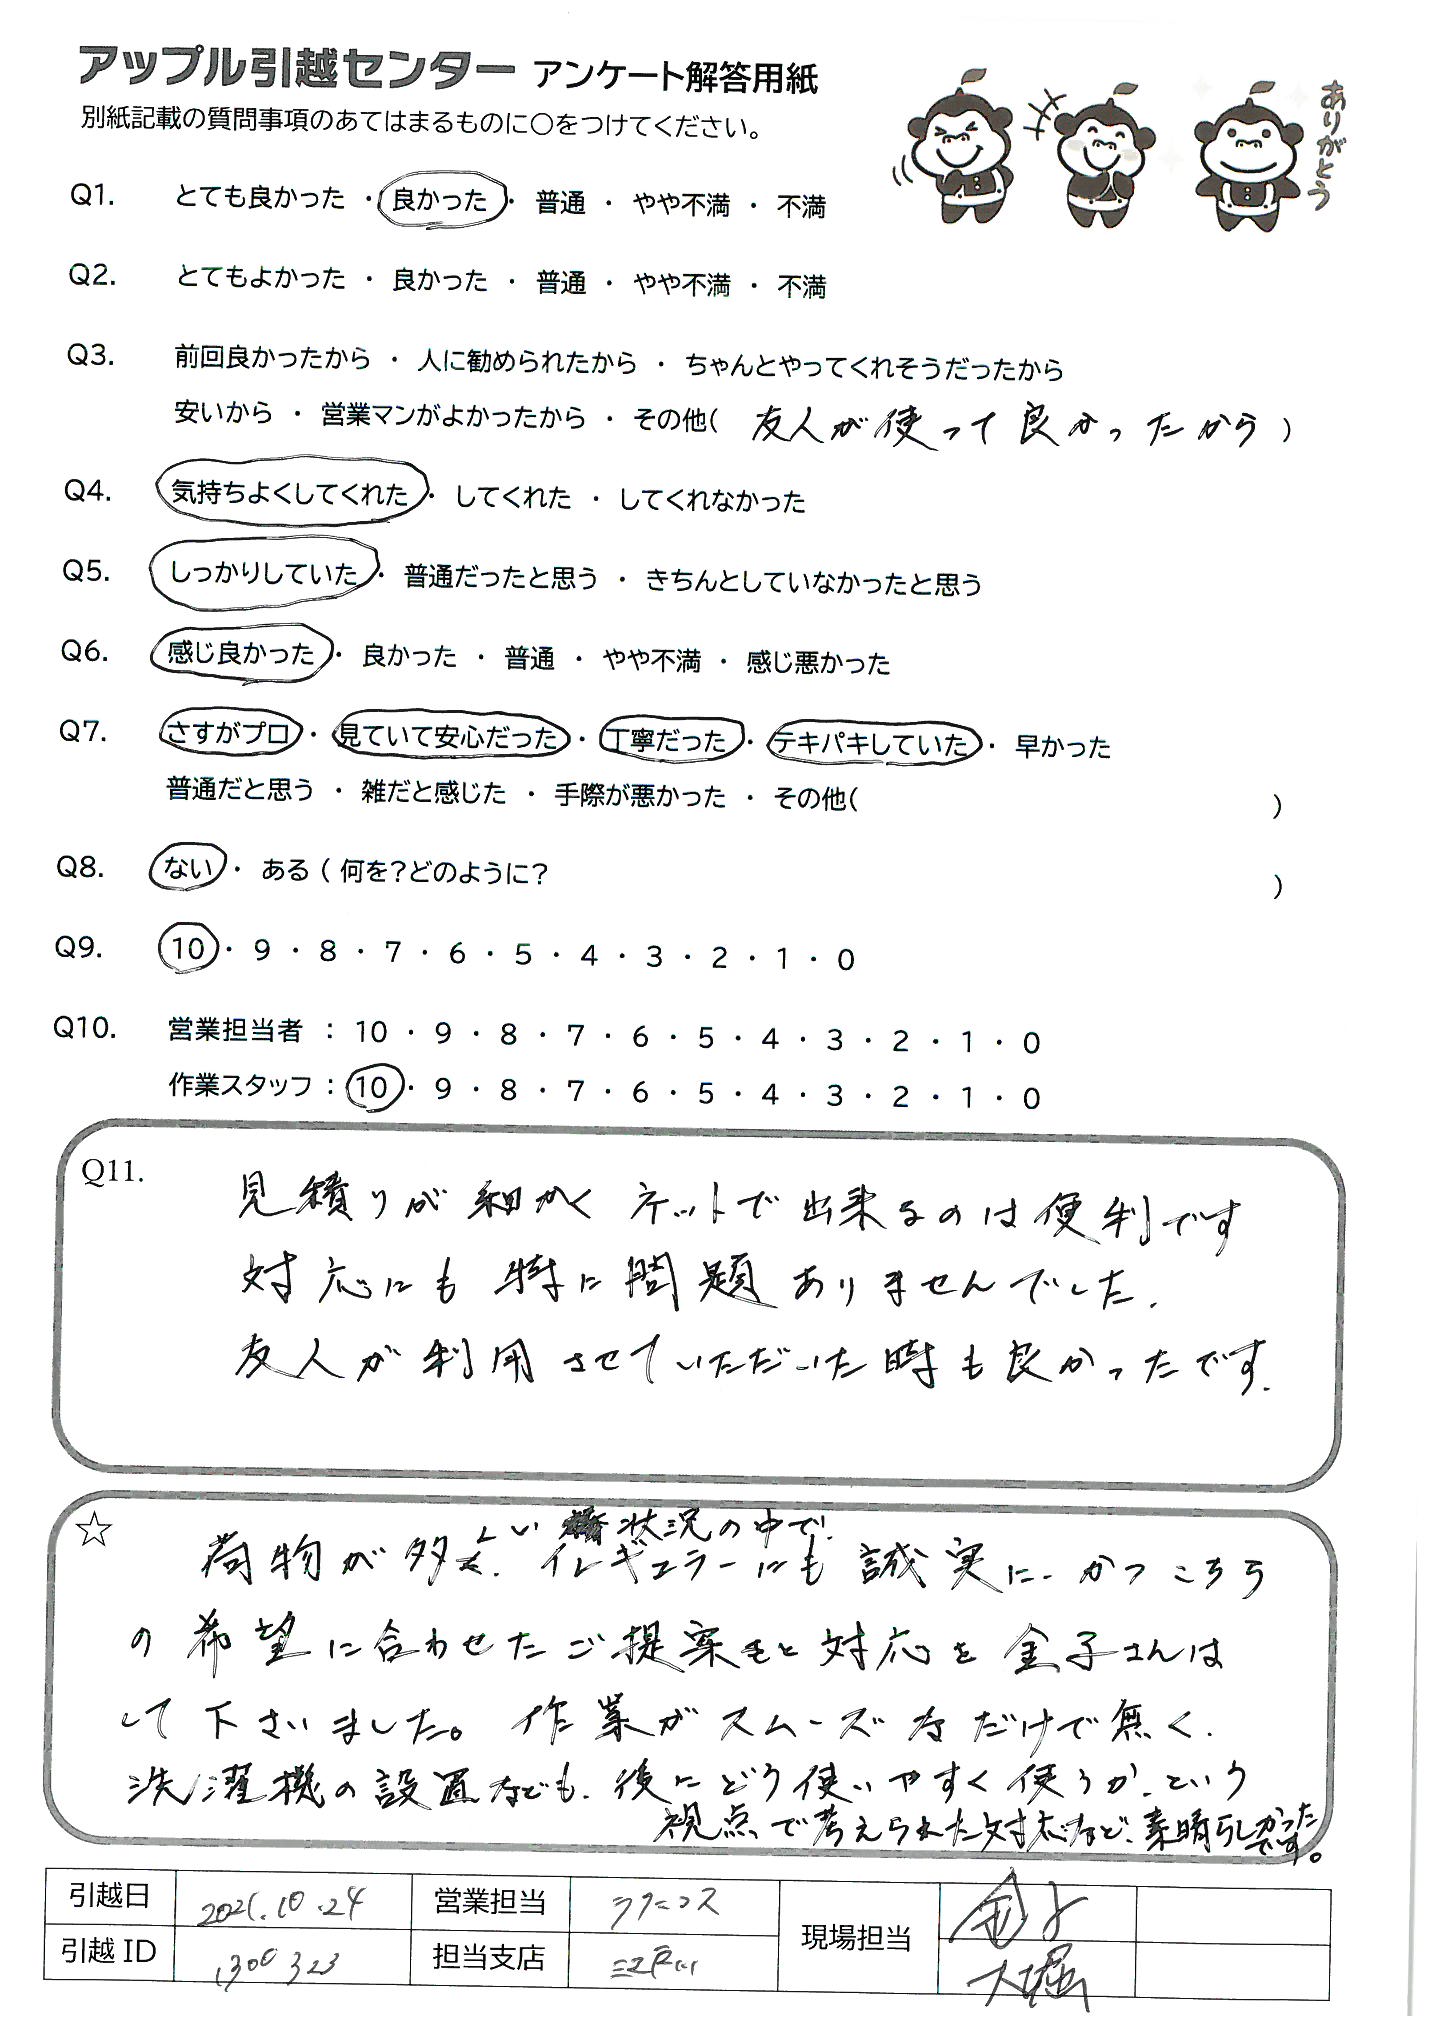 アップル引越センター アンケート解答用紙
別紙記載の質問事項のあてはまるものに○をつけてください。
ありがとう
Q1. とても良かった ・ 良かった ・ 普通 ・ やや不満 ・ 不満
Q2. とてもよかった ・ 良かった ・ 普通 ・ やや不満 ・ 不満
Q3. 前回良かったから ・ 人に勧められたから ・ ちゃんとやってくれそうだったから
安いから ・ 営業マンがよかったから ・ その他( 友人が使って良かったから )
Q4. 気持ちよくしてくれた ・ してくれた ・ してくれなかった
Q5. しっかりしていた ・ 普通だったと思う ・ きちんとしていなかったと思う
Q6. 感じ良かった ・ 良かった ・ 普通 ・ やや不満 ・ 感じ悪かった
Q7. さすがプロ ・ 見ていて安心だった ・ 丁寧だった ・ テキパキしていた ・ 早かった
普通だと思う ・ 雑だと感じた ・ 手際が悪かった ・ その他( )
Q8. ない ・ ある ( 何を?どのように? )
Q9. 10 ・ 9 ・ 8 ・ 7 ・ 6 ・ 5 ・ 4 ・ 3 ・ 2 ・ 1 ・ 0
Q10. 営業担当者 : 10 ・ 9 ・ 8 ・ 7 ・ 6 ・ 5 ・ 4 ・ 3 ・ 2 ・ 1 ・ 0
作業スタッフ : 10 ・ 9 ・ 8 ・ 7 ・ 6 ・ 5 ・ 4 ・ 3 ・ 2 ・ 1 ・ 0
Q11. 見積りが細かくネットで出来るのは便利です
対応にも特に問題ありませんでした.
友人が利用させていただいた時も良かったです.
い 状況の中で、
☆ 荷物が多く、イレギュラーにも誠実に、かつこちら
の希望に合わせたご提案をと対応を金子さんは
して下さいました。作業がスムーズなだけで無く、
洗濯機の設置なども、後にどう使いやすく使うか、という
視点で考えられた対応など、素晴らしかった
です。
引越日 2021.10.24 営業担当 ラクニコス 現場担当 金子
引越ID 1300323 担当支店 大堀